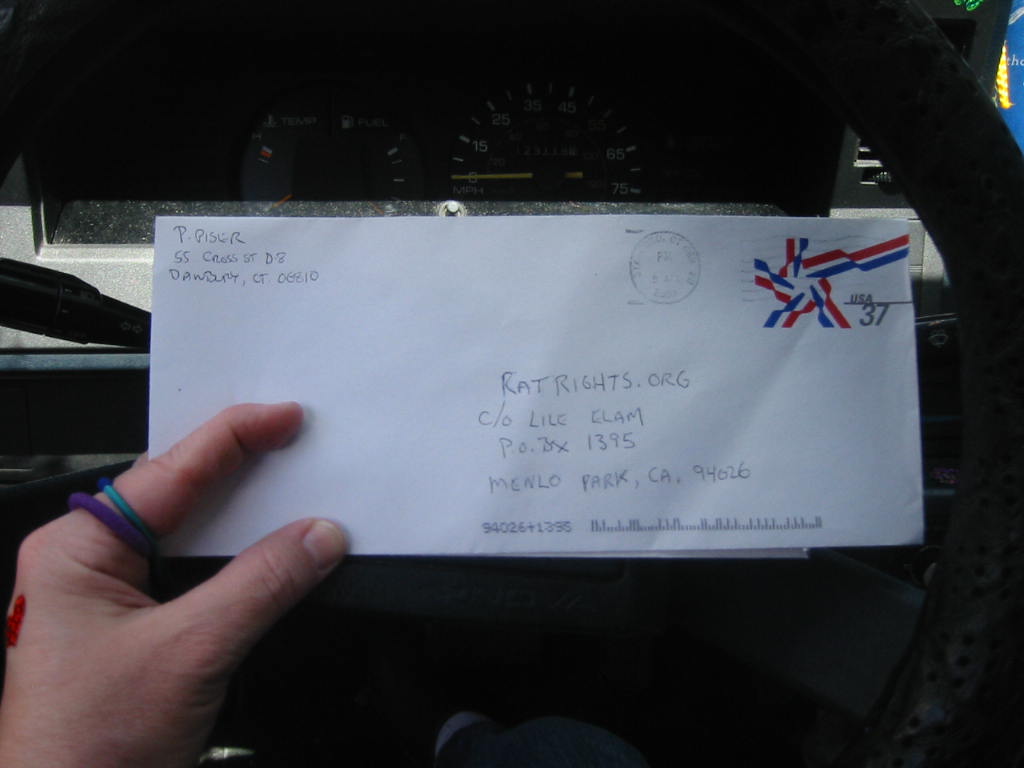 TEMP
FUEL
H
F
15
25
35
45
55
65
75
MPH
P. PISER
55 CROSS ST D-8
DANBURY, CT. 06810
USA
37
RATRIGHTS.ORG
C/O LILE ELAM
P.O. BX 1395
MENLO PARK, CA. 94026
94026+1395